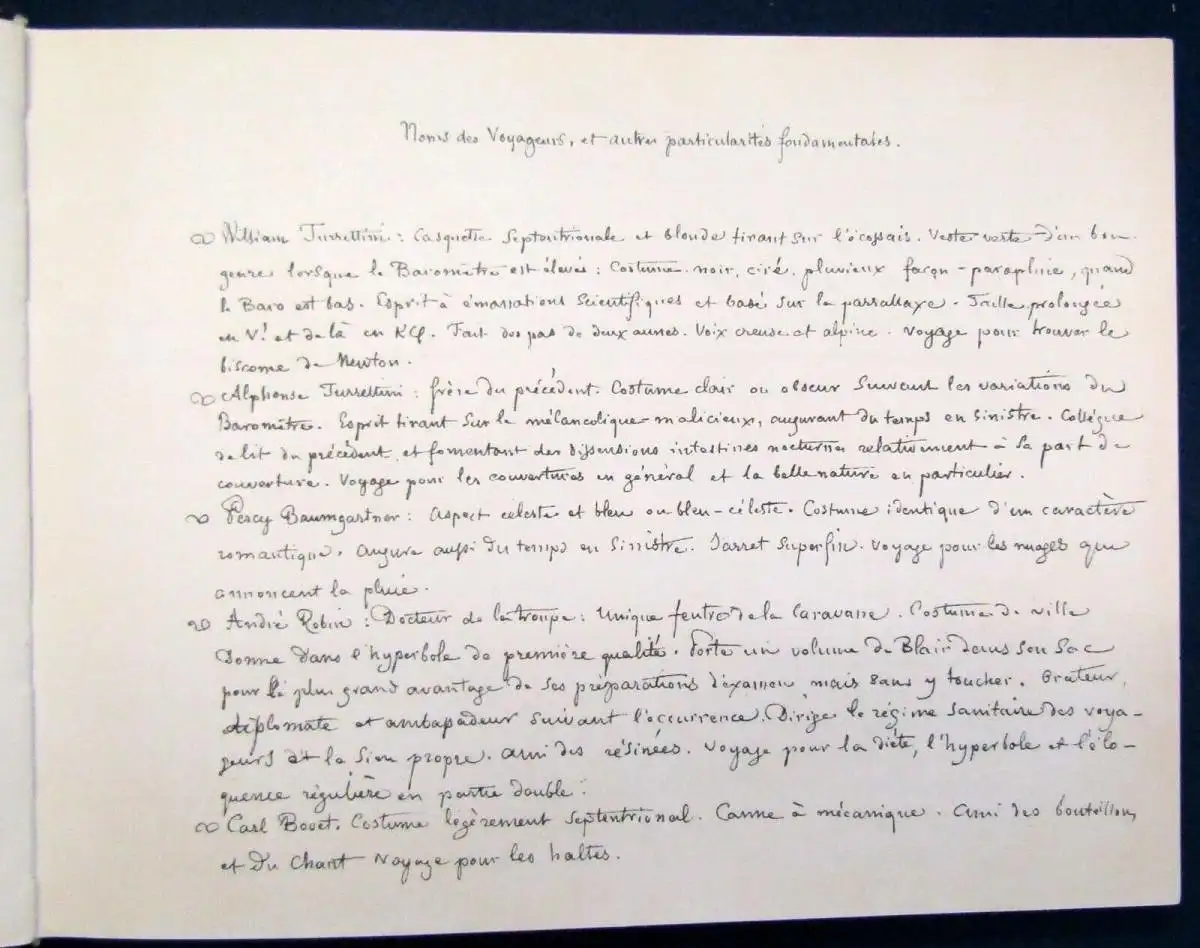 Noms des Voyageurs, et autres particularités fondamentales.
William Turrettini : Casquette Septentrionale et blonde tirant sur l'écossais. Veste verte d'un bon
genre lorsque le Baromètre est élevé : Costume noir, ciré, pluvieux façon-parapluie, quand
le Baro est bas. Esprit à émanations Scientifiques et basé sur la parrallaxe. Taille prolongée
en V! et de là en Fait des pas de deux aunes. Voix creuse et alpine. Voyage pour trouver le
biscome de Newton.
Alphonse Turrettini : frère du précédent. Costume clair ou obscur suivant les variations du
Baromètre. Esprit tirant sur le mélancolique-malicieux, augurant du temps en sinistre. Collègue
de lit du précédent, et fomentant des dissensions intestines nocturnes relativement à sa part de
couverture. Voyage pour les couvertures en général et la belle nature en particulier.
Percy Baumgartner : aspect céleste et bleu ou bleu-céleste. Costume identique d'un caractère
romantique. augure aussi du temps en Sinistre. Jarret Superfin. Voyage pour les nuages que
annoncent la pluie.
André Robin : Docteur de la troupe : Unique feutre de la Caravane. Costume de ville
Donne dans l'hyperbole de première qualité. Porte un volume de Blair dans son Sac
pour le plus grand avantage de ses préparations d'examen, mais sans y toucher. Orateur,
diplomate et ambassadeur suivant l'occurrence. Dirige le régime sanitaire des voya-
geurs et le sien propre. ami des résinées. Voyage pour la diète, l'hyperbole et l'élo-
quence régulière en partie double.
Carl Bovet. Costume légèrement Septentrional. Canne à mécanique. Ami des bouteillons,
et du Chant Voyage pour les haltes.